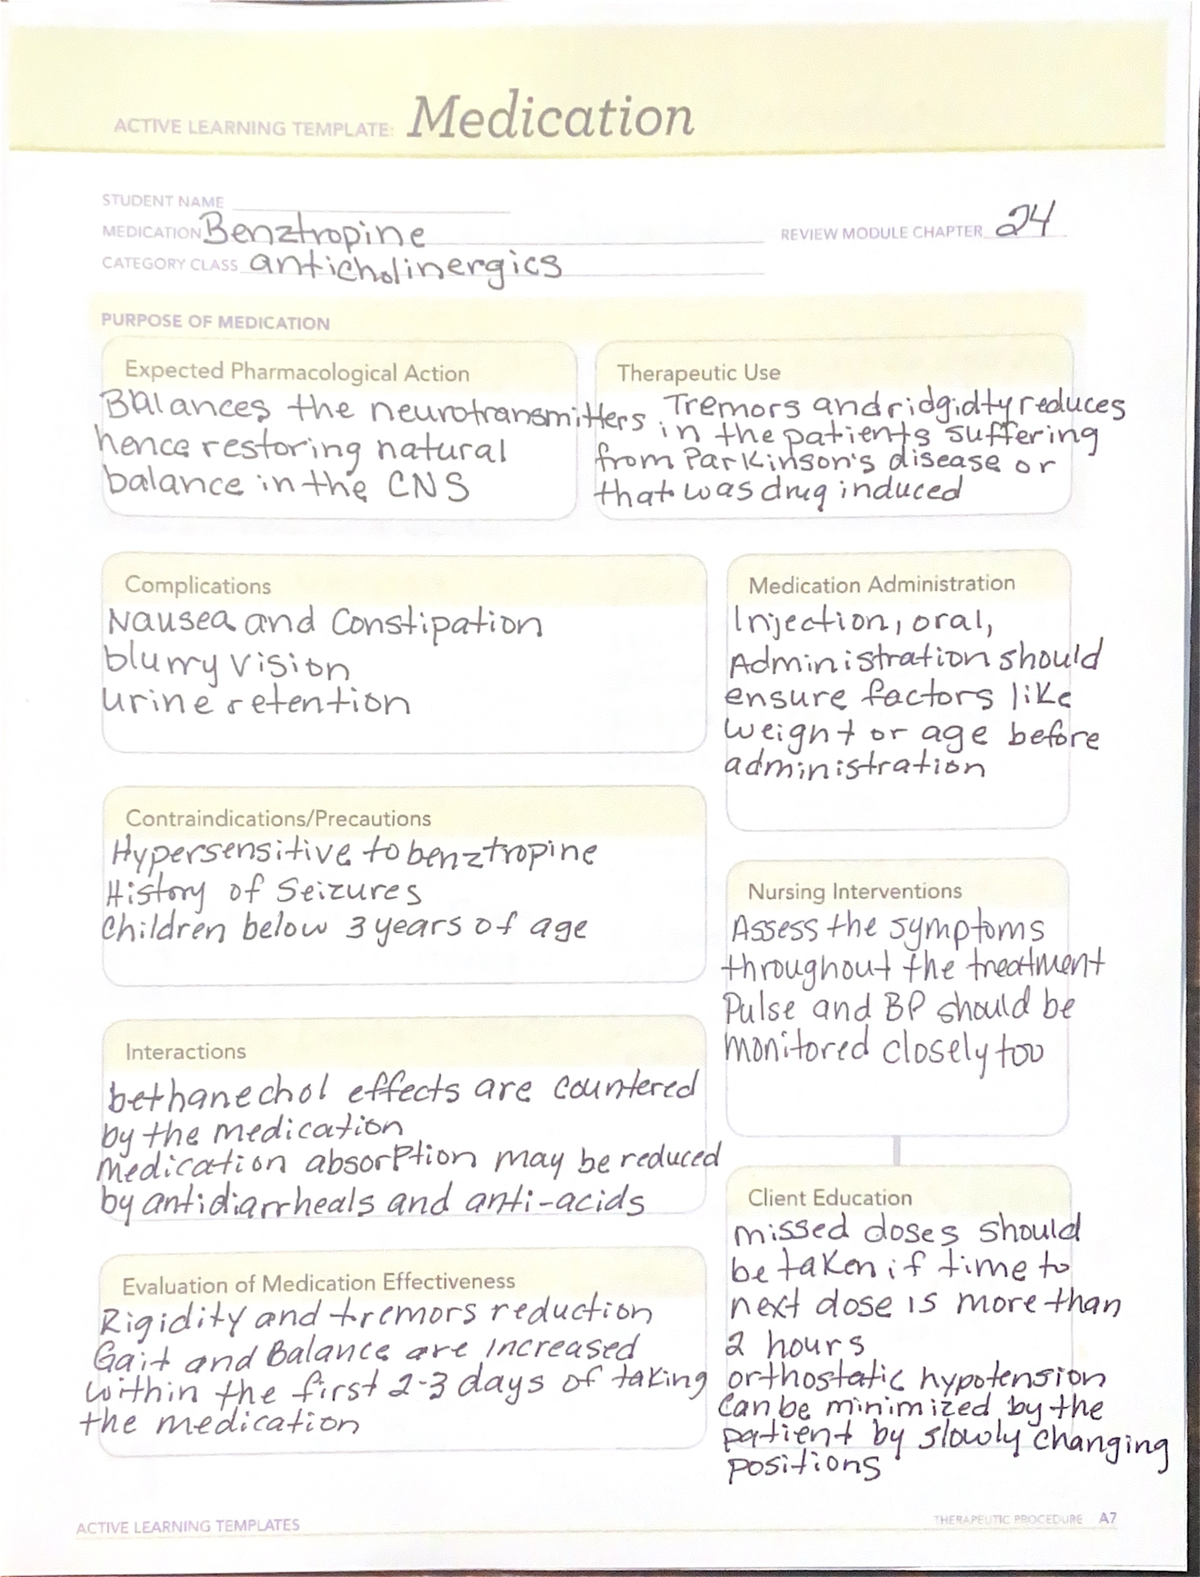 ACTIVE LEARNING TEMPLATE: Medication
STUDENT NAME
MEDICATION Benztropine
REVIEW MODULE CHAPTER 24
CATEGORY CLASS anticholinergics
PURPOSE OF MEDICATION
Expected Pharmacological Action
Balances the neurotransmitters
hence restoring natural
balance in the CNS
Therapeutic Use
Tremors and ridgidty reduces
in the patients suffering
from Parkinson's disease or
that was drug induced
Complications
Nausea and Constipation
blurry vision
urine retention
Medication Administration
Injection, oral,
Administration should
ensure factors like
weight or age before
administration
Contraindications/Precautions
Hypersensitive to benztropine
History of Seizures
Children below 3 years of age
Nursing Interventions
Assess the symptoms
throughout the treatment
Pulse and BP should be
monitored closely too
Interactions
bethanechol effects are countered
by the medication
Medication absorption may be reduced
by antidiarrheals and anti-acids
Client Education
missed doses should
be taken if time to
next dose is more than
2 hours
orthostatic hypotension
can be minimized by the
patient by slowly changing
positions
Evaluation of Medication Effectiveness
Rigidity and tremors reduction
Gait and Balance are increased
within the first 2-3 days of taking
the medication
ACTIVE LEARNING TEMPLATES
THERAPEUTIC PROCEDURE A7